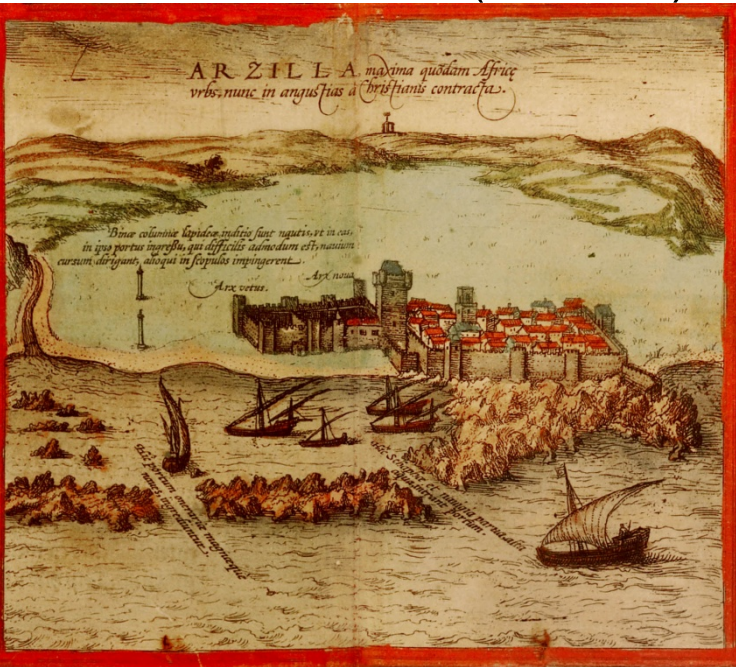 ARZILLA, maxima quõdam Africę
vrbs, nunc in angustias à Christianis contracta.
Binæ columnæ lapideæ, inditio sunt nautis, vt in eas,
in ipso portus ingressu, qui difficilis admodum est, nauium
cursum dirigant, alioqui in scopulos impingerent.
Arx noua
Arx vetus.
Hac portum intrantes
naues
Hac